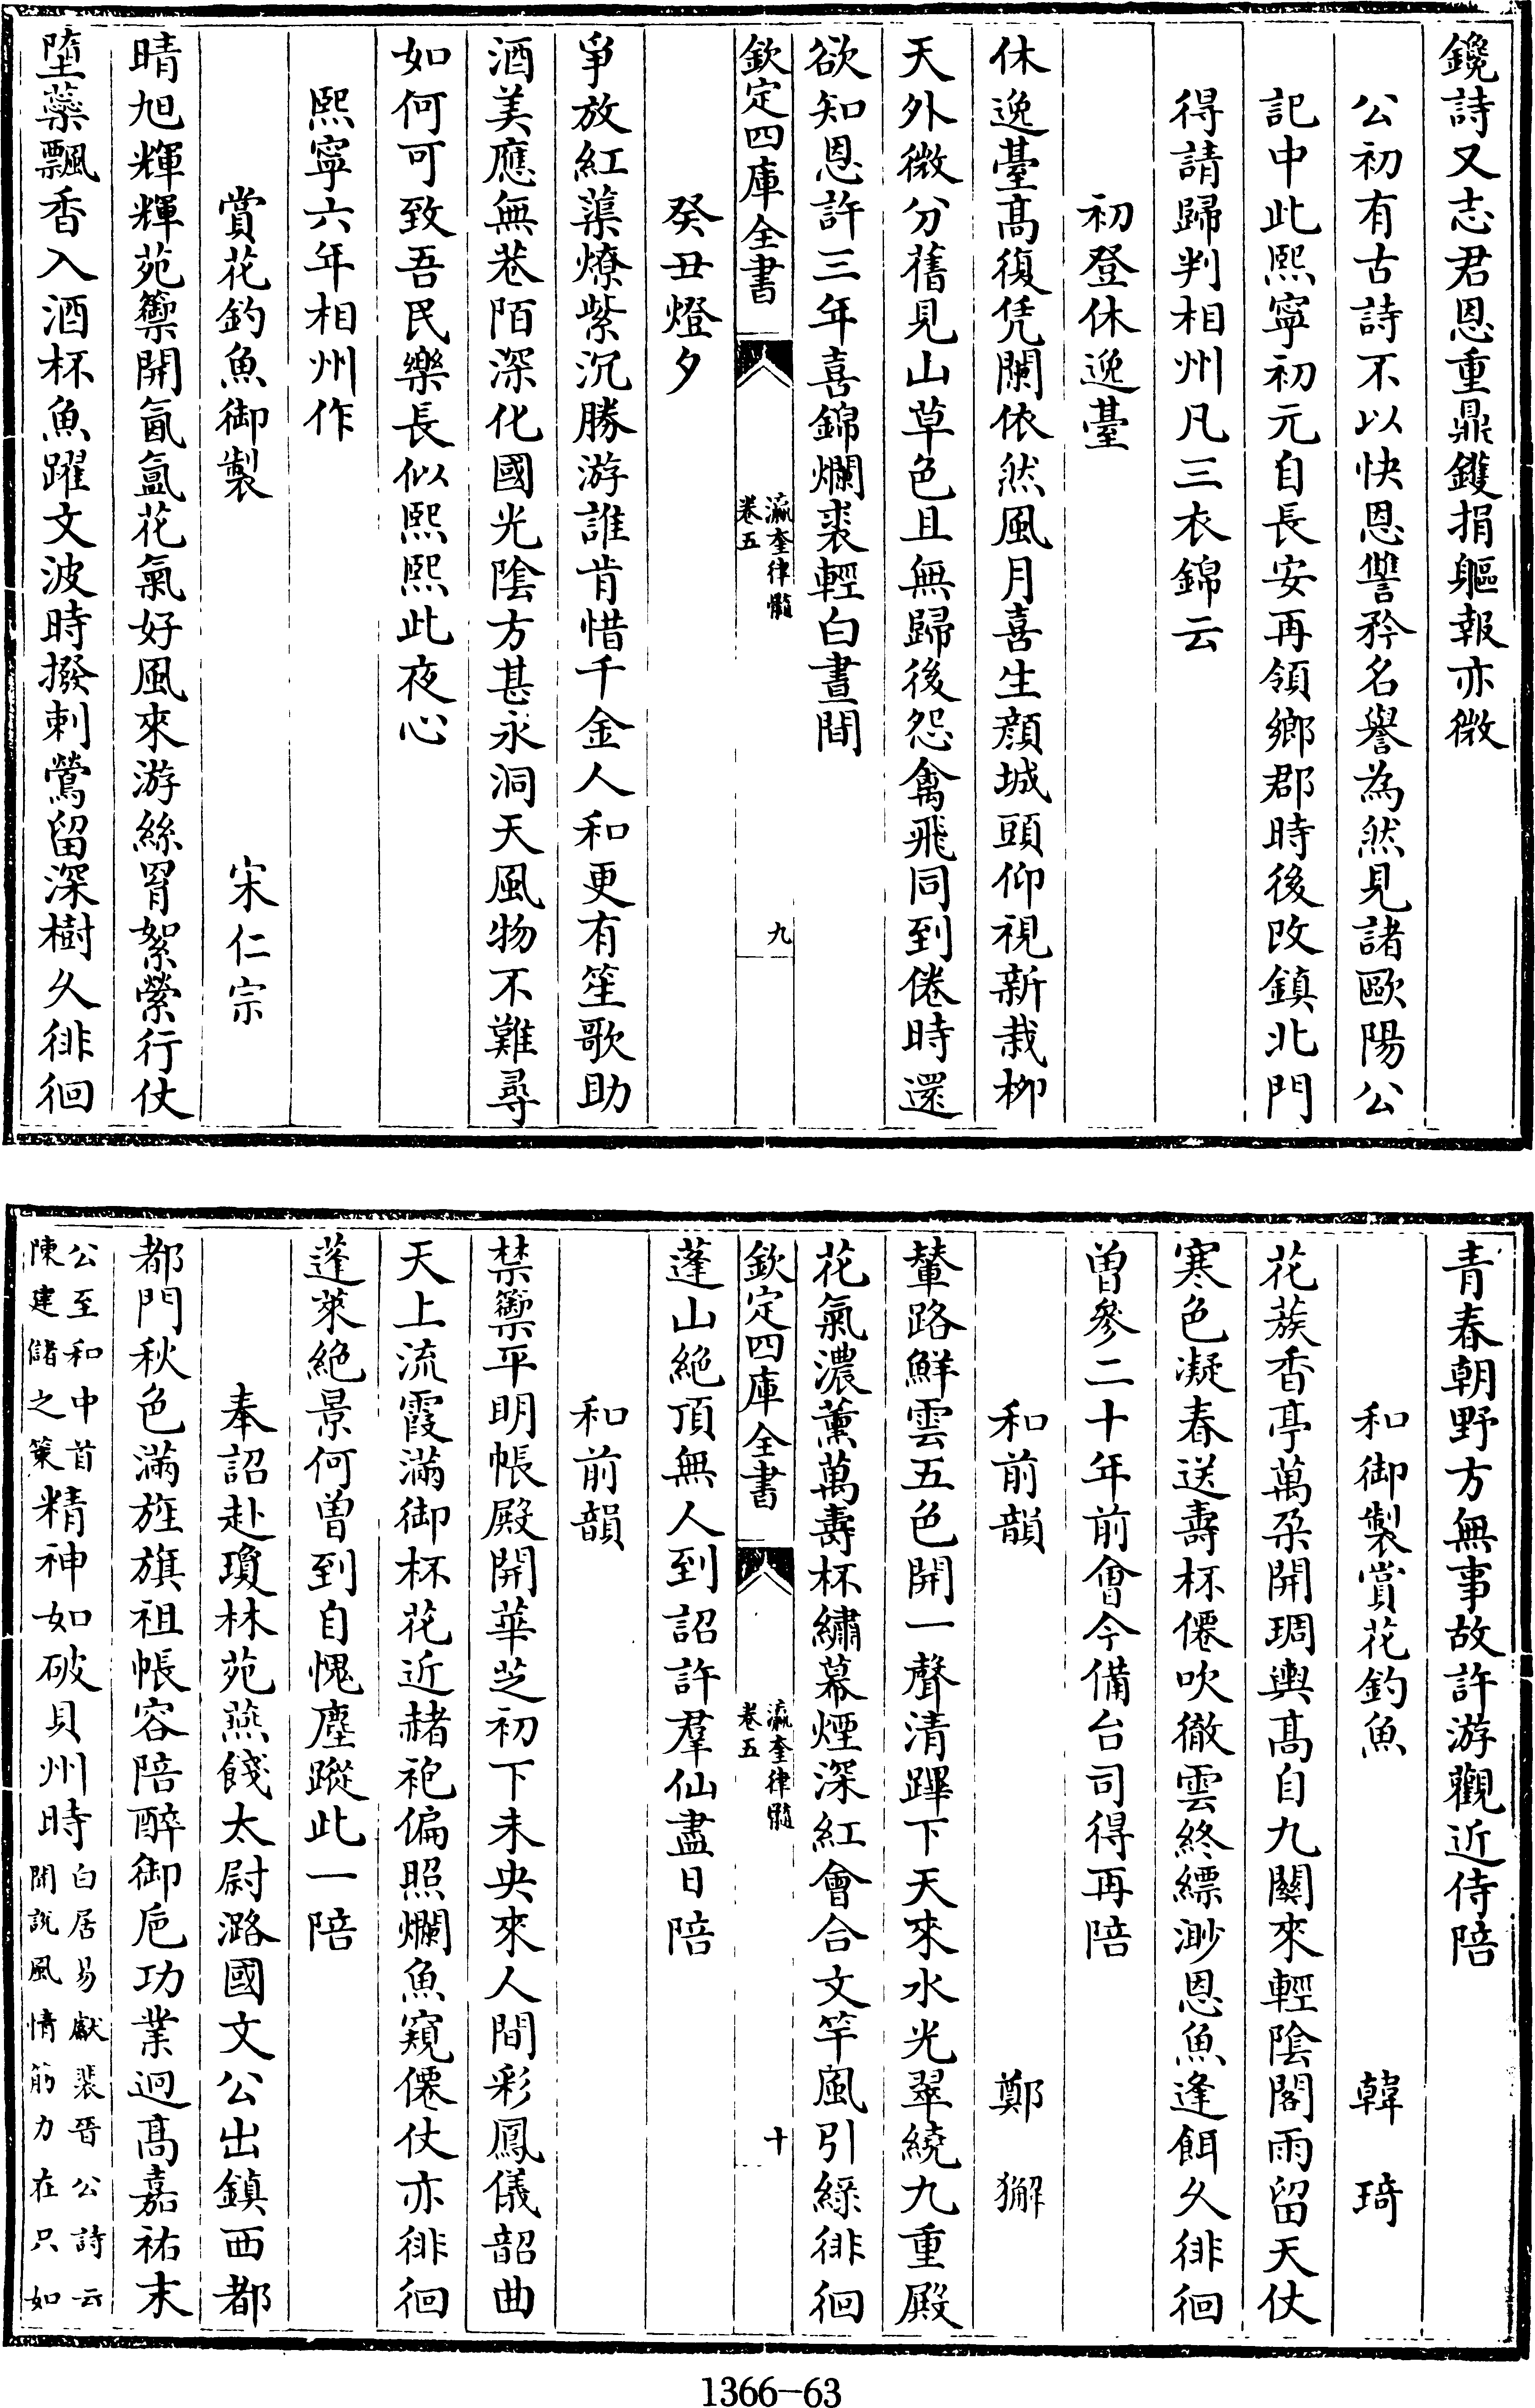 鑱詩又志君恩重鼎鑊捐軀報亦微
公初有古詩不以快恩讐矜名譽為然見諸歐陽公
記中此熙寧初元自長安再領鄉郡時後改鎮北門
得請歸判相州凡三衣錦云
初登休逸臺
休逸臺高復凭闌依然風月喜生顔城頭仰視新栽栁
天外微分舊見山草色且無歸後怨禽飛同到倦時還
欲知恩許三年喜錦爛裘輕白晝間
欽定四庫全書
瀛奎律髓
卷五
九
癸丑燈夕
爭放紅蕖燎紫沉勝游誰肯惜千金人和更有笙歌助
酒美應無巷陌深化國光陰方甚永洞天風物不難尋
如何可致吾民樂長似熙熙此夜心
熙寧六年相州作
賞花釣魚御製 宋仁宗
晴旭輝輝苑籞開氤氲花氣好風來游絲罥絮縈行仗
墮蘂飄香入酒杯魚躍文波時撥剌鶯留深樹久徘徊
青春朝野方無事故許游觀近侍陪
和御製賞花釣魚 韓琦
花蔟香亭萬朶開琱輿高自九闗來輕陰閣雨留天仗
寒色凝春送壽杯僊吹徹雲終縹渺恩魚逢餌久徘徊
曽參二十年前會今備台司得再陪
和前韻 鄭獬
輦路鮮雲五色開一聲清蹕下天來水光翠繞九重殿
花氣濃薰萬壽杯繡幕煙深紅會合文竿風引綠徘徊
欽定四庫全書
瀛奎律髓
卷五
十
蓬山絶頂無人到詔許羣仙盡日陪
和前韻
禁籞平明帳殿開華芝初下未央來人間彩鳳儀韶曲
天上流霞滿御杯花近赭袍偏照爛魚窺僊仗亦徘徊
蓬萊絶景何曽到自愧塵蹤此一陪
奉詔赴瓊林苑燕餞太尉潞國文公出鎮西都
都門秋色滿旌旗祖帳容陪醉御巵功業迥高嘉祐末
公至和中首
陳建儲之䇿
精神如破貝州時
白居易獻裴晉公詩云
聞說風情筋力在只如
1366-63